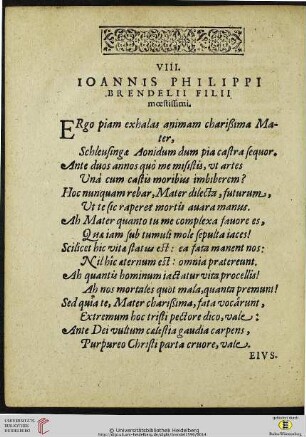 VIII.
IOANNIS PHILIPPI
BRENDELII FILII
mœstissimi.
ERgo piam exhalas animam charißima Ma-
ter,
Schleusingæ Aonidum dum pia castra sequor.
Ante duos annos quò me misistis, ut artes
Unà cum castis moribus imbiberem?
Hoc nunquam rebar, Mater dilecta, futurum,
Ut te sic raperet mortis avara manus.
Ah Mater quanto tu me complexa favore es,
Quæ iam sub tumuli mole sepulta iaces!
Scilicet hic vitæ status est: ea fata manent nos:
Nil hic æternum est: omnia prætereunt.
Ah quantis hominum iactatur vita procellis!
Ah nos mortales quot mala, quanta premunt!
Sed quia te, Mater charißima, fata vocârunt,
Extremum hoc tristi pectore dico, vale:
Ante Dei vultum cælestia gaudia carpens,
Purpureo Christi parta cruore, vale.
EIVS.
UNIVERSITÄTS-
BIBLIOTHEK
HEIDELBERG
© Universitätsbibliothek Heidelberg
gefördert durch
Baden-Württemberg